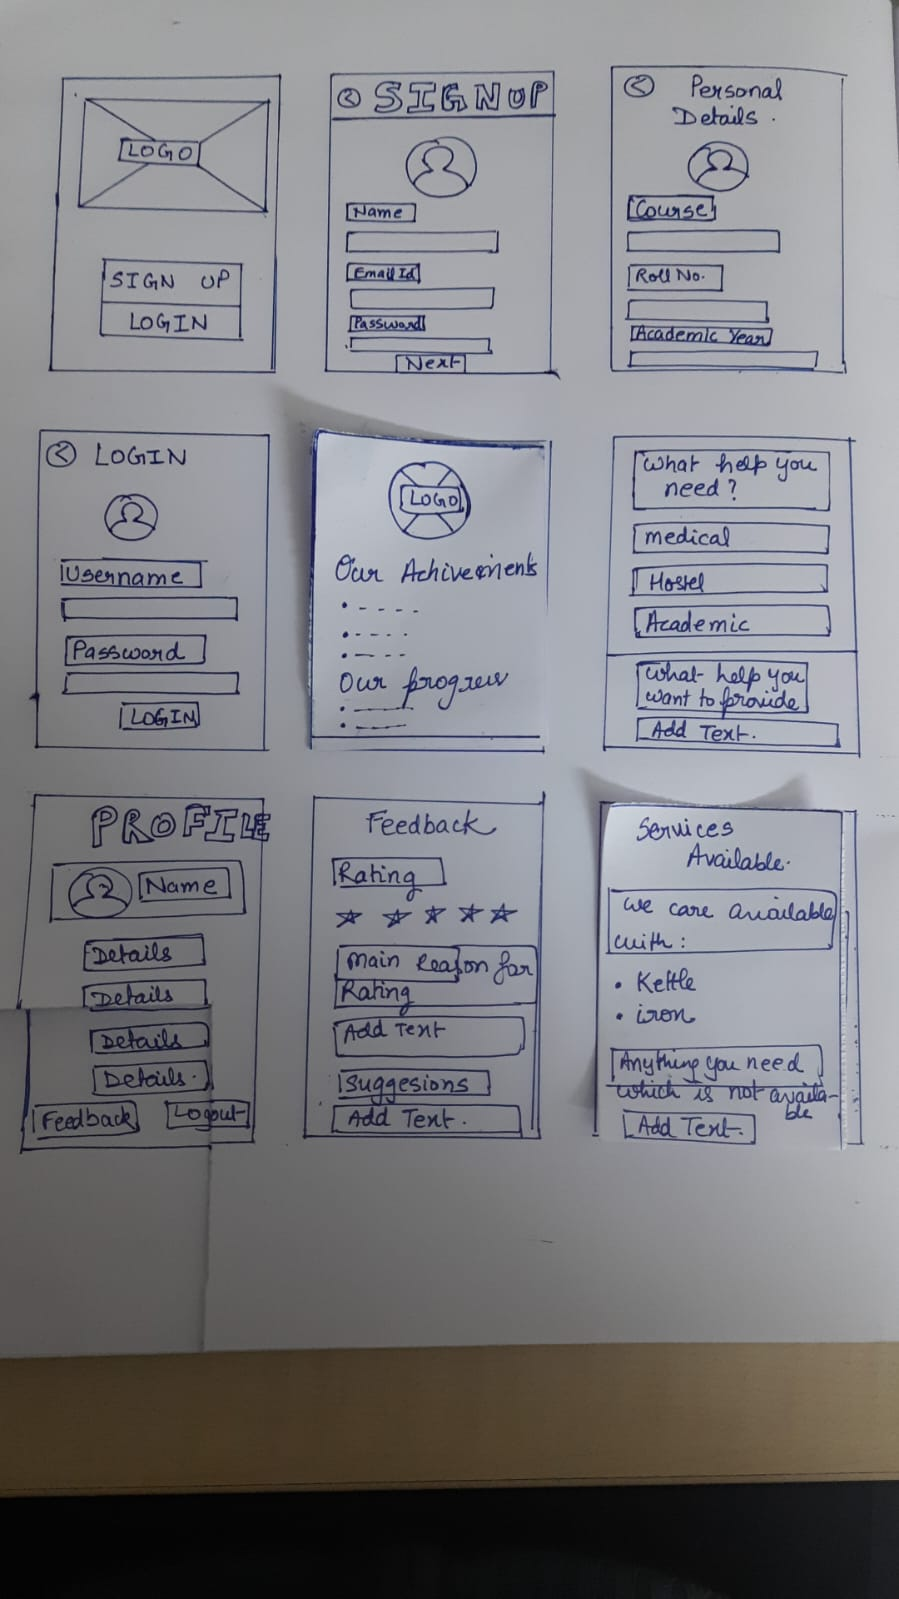 LOGO
SIGN UP
LOGIN
SIGNUP
Name
Email Id
Password
Next
Personal
Details.
Course
Roll No.
Academic Year
LOGIN
Username
Password
LOGIN
LOGO
Our Achivements
Our progress
What help you
need?
medical
Hostel
Academic
What help you
want to provide
Add Text.
PROFILE
Name
Details
Details
Details
Details.
Feedback
Logout
Feedback
Rating
Main Reason for
Rating
Add Text
Suggesions
Add Text.
Services
Available.
We care available
with:
• Kettle
• iron
Anything you need
which is not availa-
ble
Add Text.